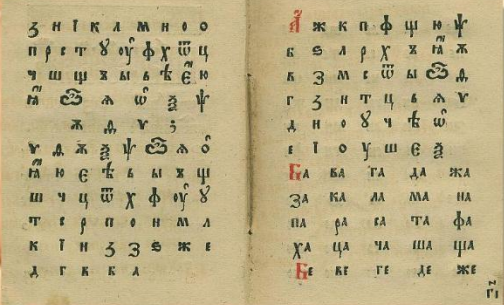 ꙁ и ї к л м н о о
п р с т ꙋ оу ф х ѿ ц
ч ш щ ъ ы ь ѣ є ю
ꙗ ѻ ѧ ѡ ѯ ѱ
ѫ ѳ ѵ ;
ѵ ѳ ѫ ѯ ѱ ѻ ѧ ѡ
ꙗ ю є ѣ ь ы ъ щ
ш ч ц ѿ х ф оу ꙋ
т с р п о н м л
к ї и з ꙁ ѕ ж е
д г в б а
А ж к п ф щ ю ѱ
б ѕ л р х ъ ꙗ ѫ
в з м с ѿ ы ѻ ѳ
г ꙁ н т ц ь ѧ ѵ
д и о ꙋ ч ѣ ѡ
е ї о оу ш є ѯ
Ба ва га да жа
за ка ла ма на
па ра са та фа
ха ца ча ша ща
Бе ве ге де же
гі